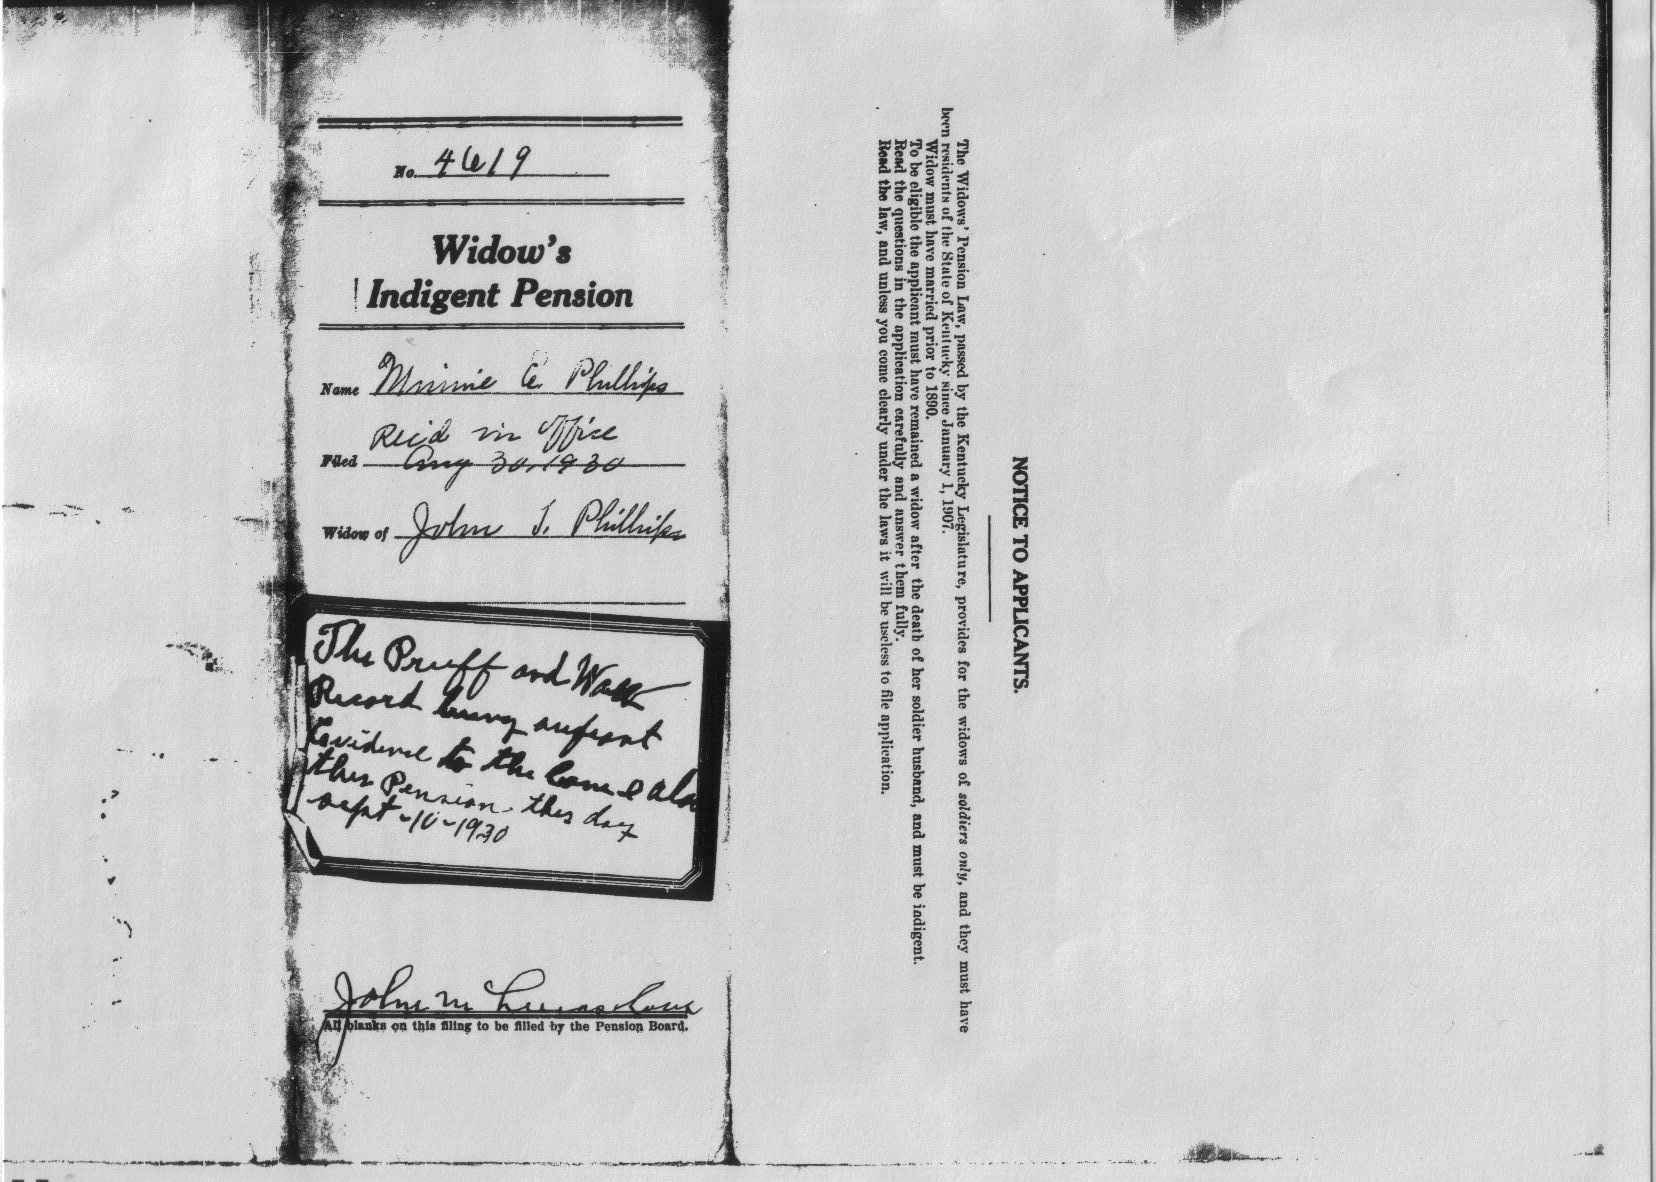 No. 4619
Widow's
Indigent Pension
Name Minnie E. Phillips
Rec'd in Office
Filed Aug 30, 1930
Widow of John T. Phillips
The Pruff and Warr
Record being sufisant
Evidence to the Com e alow
this Pension this day
sept - 10 - 1930
John M
All blanks on this filing to be filled by the Pension Board.
NOTICE TO APPLICANTS.
The Widows' Pension Law, passed by the Kentucky Legislature, provides for the widows of soldiers only, and they must have
been residents of the State of Kentucky since January 1, 1907.
Widow must have married prior to 1890.
To be eligible the applicant must have remained a widow after the death of her soldier husband, and must be indigent.
Read the questions in the application carefully and answer them fully.
Read the law, and unless you come clearly under the laws it will be useless to file application.